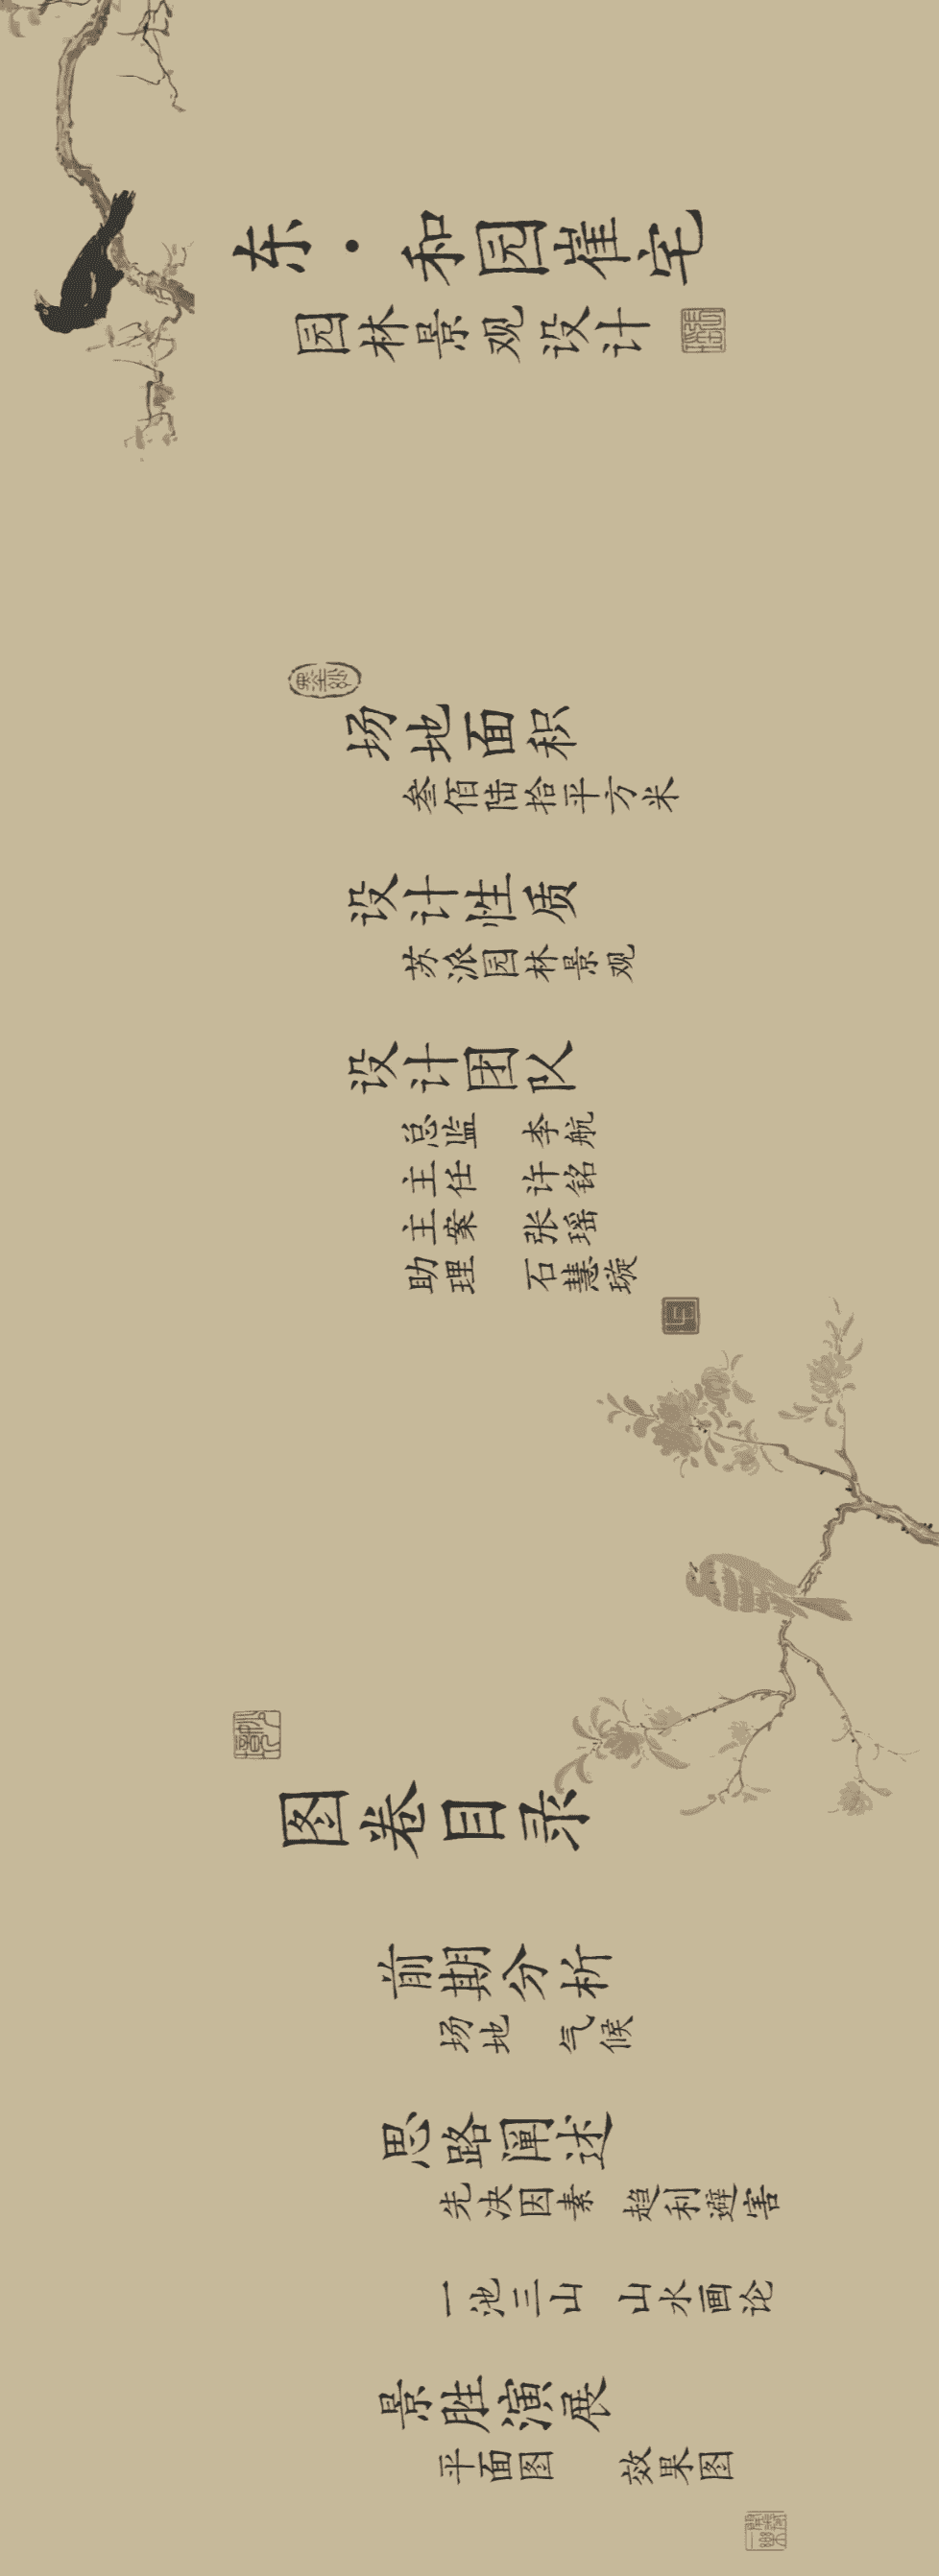 东·和园崔宅
园林景观设计
场地面积
叁佰陆拾平方米
设计性质
苏派园林景观
设计团队
总监 李航
主任 许铭
主案 张瑶
助理 石慧璇
图卷目录
前期分析
场地 气候
思路阐述
先决因素 趋利避害
一池三山 山水画论
景胜演展
平面图 效果图